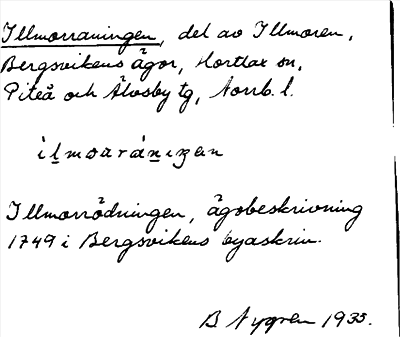 Illmorraningen, del av Illmoren,
Bergsvikens ägor, Hortlax sn,
Piteå och Älvsby tg, Norrb. l.
Illmorrödningen, ägobeskrivning
1749 i Bergsvikens byaskrin.
B Nygren 1935.